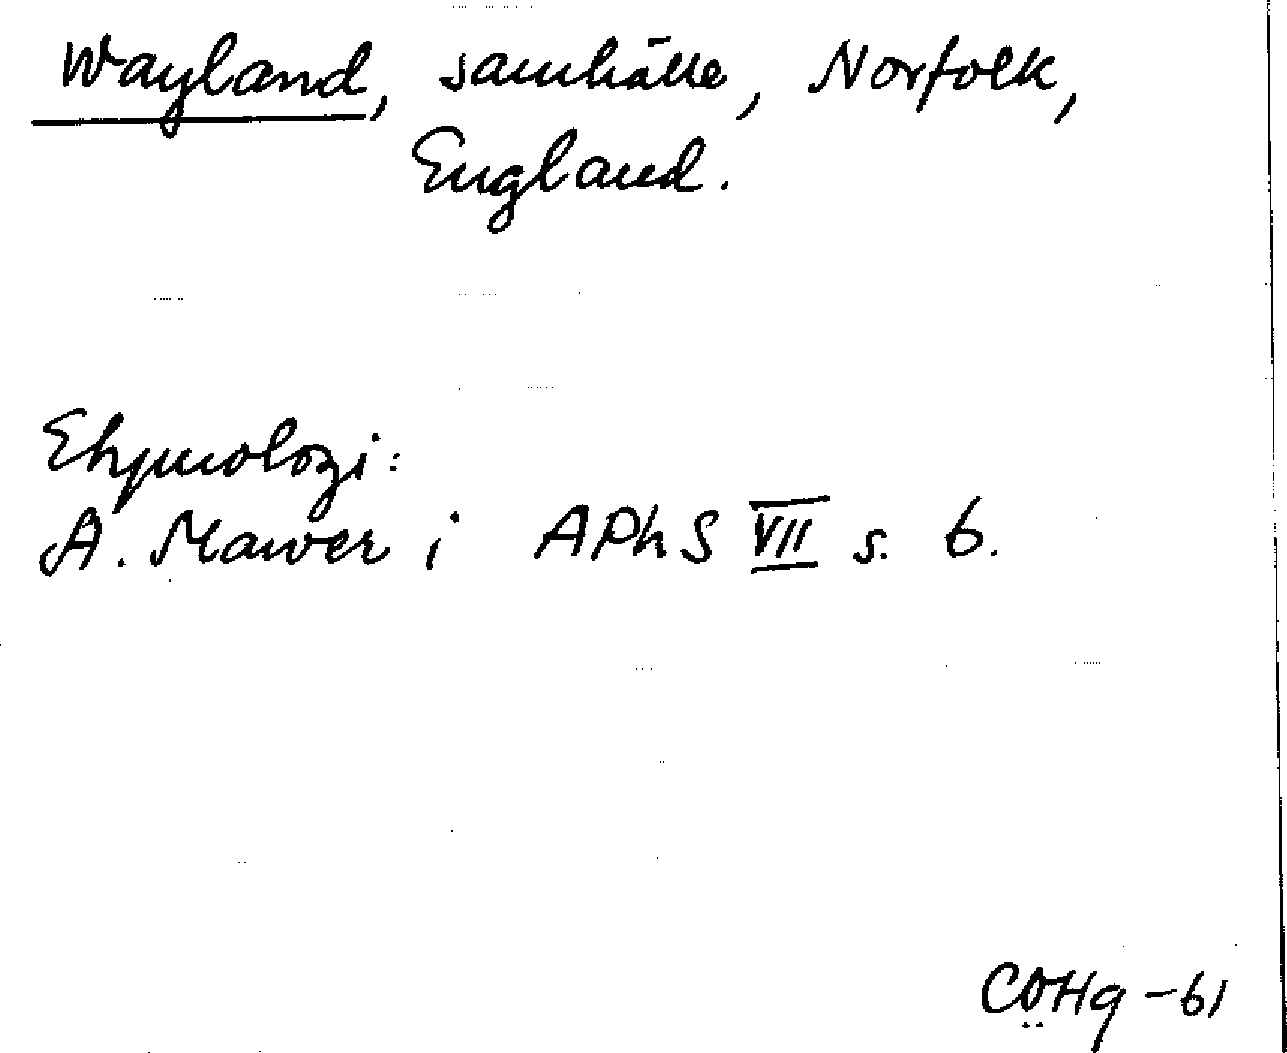 Wayland, samhälle, Norfolk,
England.
Etymologi:
A. Mawer i APhS VII s. 6.
COHg -61